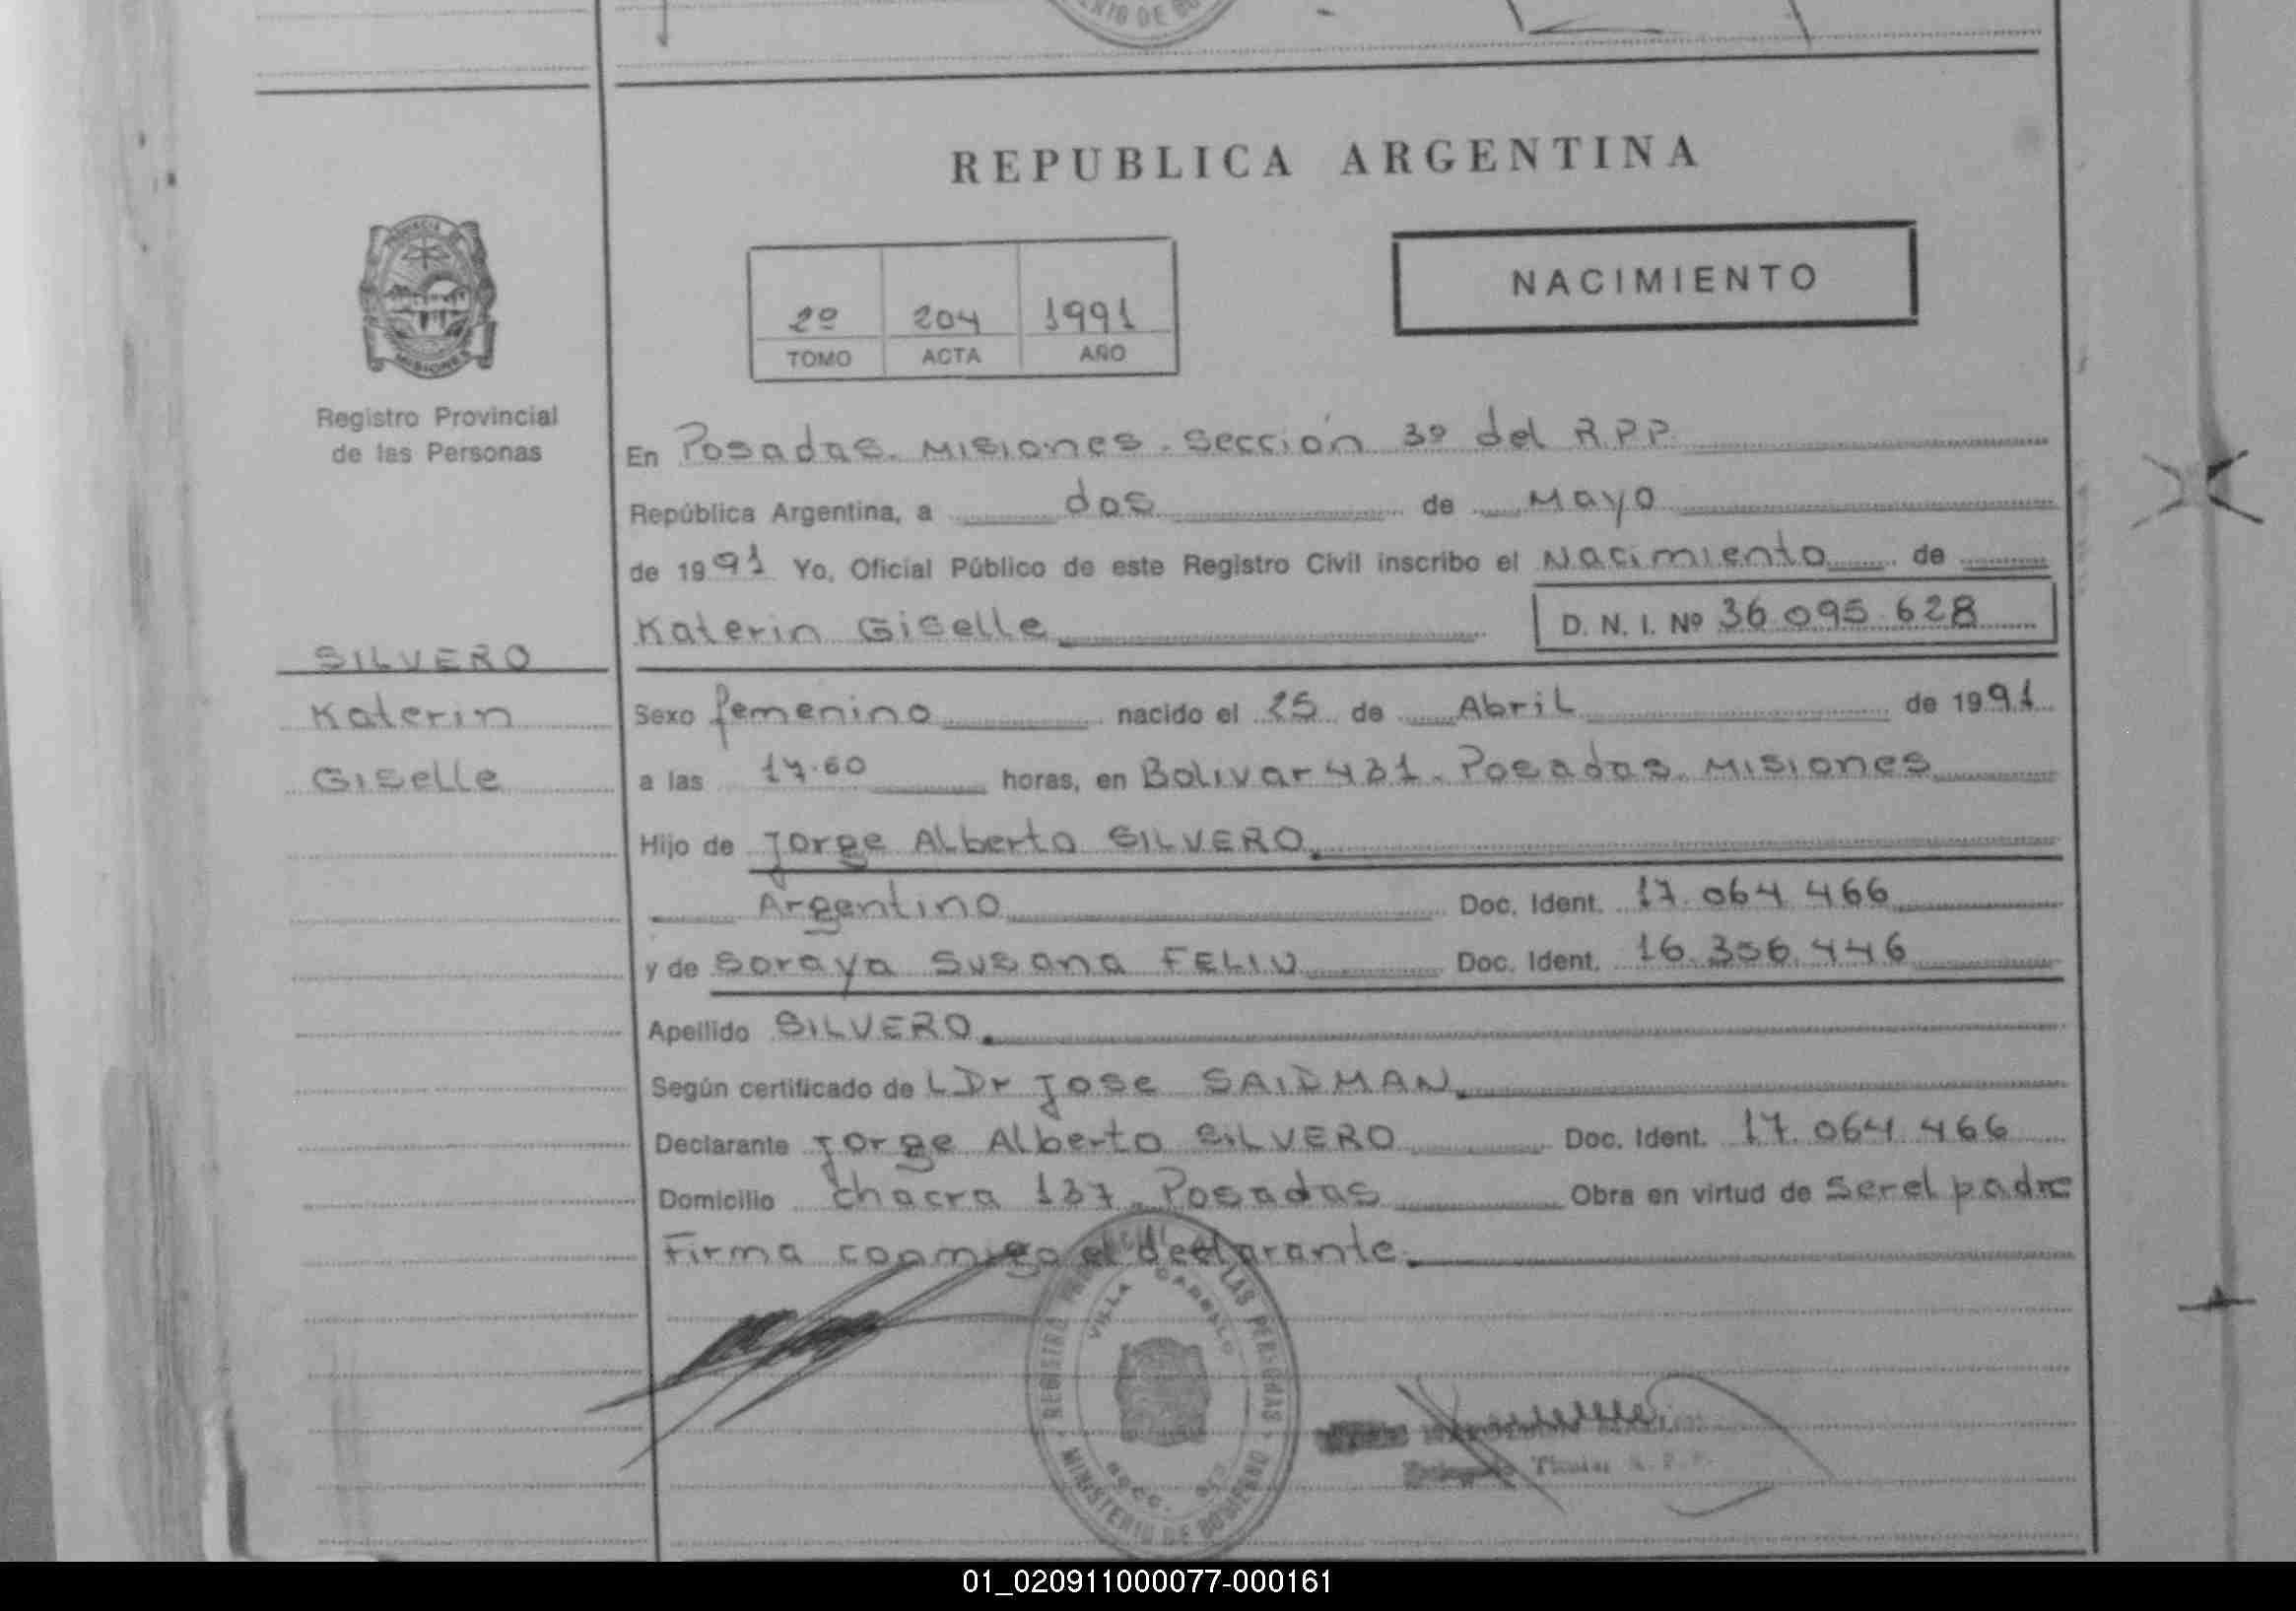 REPUBLICA ARGENTINA
NACIMIENTO
2º 204 1991
TOMO ACTA AÑO
Registro Provincial
de las Personas
En Posadas. Misiones. Sección 3º del R.P.P.
República Argentina, a dos de Mayo
de 1991 Yo, Oficial Público de este Registro Civil inscribo el Nacimiento de
Katerin Giselle D. N. I. Nº 36 095 628
SILVERO
Katerin
Giselle
Sexo femenino nacido el 25 de Abril de 1991
a las horas, en Bolivar 431. Posadas. Misiones
Hijo de Jorge Alberto SILVERO
Argentino Doc. Ident. 17.064.466
y de Soraya Susana FELIU Doc. Ident. 16.356.446
Apellido SILVERO
Según certificado de LDr Jose SAIDMAN
Declarante Jorge Alberto SILVERO Doc. Ident. 17.064.466
Domicilio Chacra 137. Posadas Obra en virtud de Ser el padre
Firma conmigo el declarante.
REGISTRO LAS PERSONAS
VILLA CABELLO
MINISTERIO DE GOBIERNO
Titular R. P. P.
01_020911000077-000161